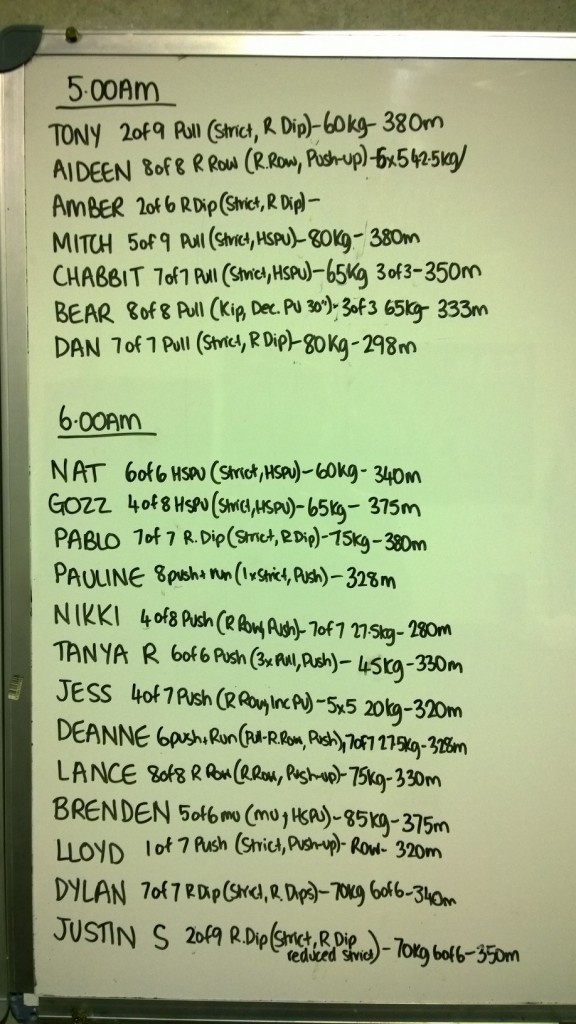 5.00AM
TONY 2of9 Pull (Strict, R Dip)-60kg- 380m
AIDEEN 8of8 R Row (R.Row, Push-up)-5x5 42.5kg/
AMBER 2of6 R Dip (Strict, R Dip)-
MITCH 5of9 Pull (Strict, HSPU)-80kg- 380m
CHABBIT 7of7 Pull (Strict, HSPU)-65kg 3of3-350m
BEAR 8of8 Pull (Kip, Dec. PU 30")-3of3 65kg- 333m
DAN 7of7 Pull (Strict, R Dip)-80kg-298m
6.00AM
NAT 6of6 HSPU (Strict, HSPU)-60kg- 340m
GOZZ 4of8 HSPU (Strict, HSPU)-65kg- 375m
PABLO 7of7 R. Dip (Strict, R Dip)-75kg-380m
PAULINE 8push+run (1xStrict, Push)-328m
NIKKI 4of8 Push (R Row, Push)-7of7 27.5kg-280m
TANYA R 6of6 Push (3xPull, Push)- 45kg-330m
JESS 4of7 Push (R Row, Inc PU)-5x5 20kg-320m
DEANNE 6push+Run (Pull-R.Row, Push), 7of7 27.5kg-328m
LANCE 8of8 R Row (R.Row, Push-up)-75kg-330m
BRENDEN 5of6 mu (mu, HSPU)-85kg-375m
LLOYD 1of7 Push (Strict, Push-up)-Row- 320m
DYLAN 7of7 R Dip (Strict, R. Dips)-70kg 6of6-340m
JUSTIN S 2of9 R.Dip (Strict, R Dip reduced strict)-70kg 6of6-350m